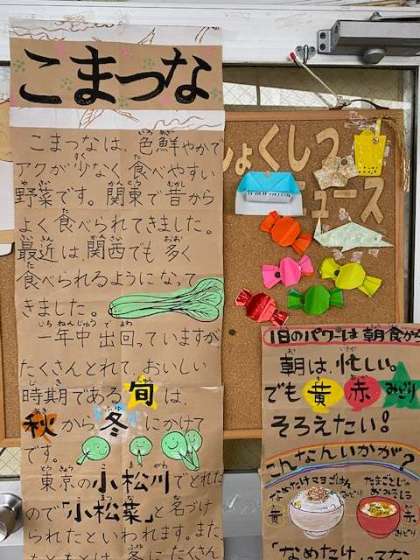 こまつな
こまつなは、色鮮やかで
アクが少なく食べやすい
野菜です。関東で昔から
よく食べられてきました。
最近は関西でも多く
食べられるようになって
きました。
一年中出回っていますが
たくさんとれて、おいしい
時期である旬は、
秋から冬にかけて
です。
東京の小松川でとれた
ので「小松菜」と名づけ
られたといわれます。また、
しょくしつ
ニュース
1日のパワーは朝食から
朝は、忙しい。
でも黄赤みどり
そろえたい！
こんなんいかが？
なめたけマヨごはん
たまごとじの
おみそしる
黄
みどり
赤
"なめたけ、マヨ